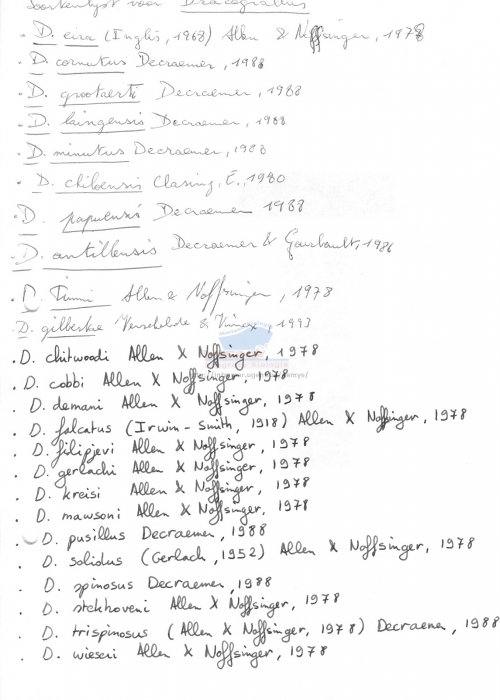 Soortenlijst voor Dracograllus
. D. eira (Inglis, 1968) Allen & Noffsinger, 1978
. D. cornutus Decraemer, 1988
. D. grootaerti Decraemer, 1988
. D. laingensis Decraemer, 1988
. D. minutus Decraemer, 1988
. D. chiloensis Clasing, E., 1980
. D. papuensis Decraemer 1988
. D. antillensis Decraemer & Gourbault, 1986
. D. Timmi Allen & Noffsinger, 1978
. D. gilbertae Verschelde & Vincx, 1993
. D. chitwoodi Allen X Noffsinger, 1978
. D. cobbi Allen X Noffsinger, 1978
. D. demani Allen X Noffsinger, 1978
. D. falcatus (Irwin-Smith, 1918) Allen X Noffsinger, 1978
. D. filipjevi Allen X Noffsinger, 1978
. D. gerlachi Allen X Noffsinger, 1978
. D. kreisi Allen X Noffsinger, 1978
. D. mawsoni Allen X Noffsinger, 1978
. D. pusillus Decraemer, 1988
. D. solidus (Gerlach, 1952) Allen X Noffsinger, 1978
D. spinosus Decraemer, 1988
. D. stekhoveni Allen X Noffsinger, 1978
. D. trispinosus (Allen X Noffsinger, 1978) Decraemer, 1988
. D. wieseri Allen X Noffsinger, 1978